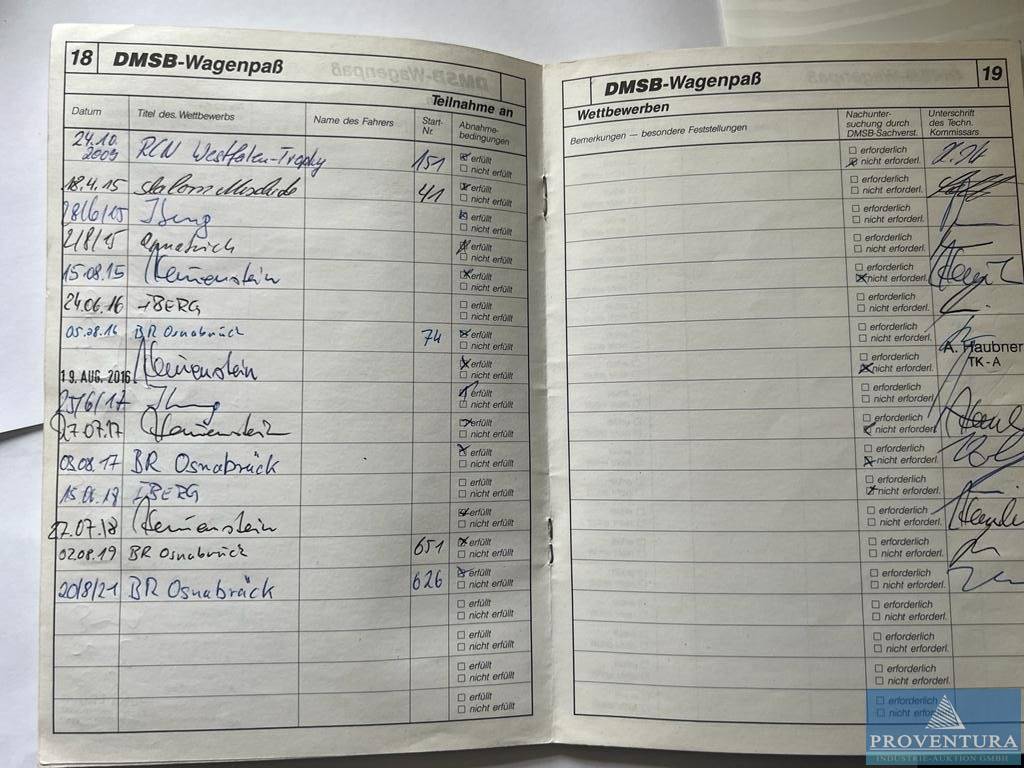 18 DMSB-Wagenpaß
Teilnahme an
Datum Titel des Wettbewerbs Name des Fahrers Start-Nr. Abnahme-bedingungen
24.10.2009 RCN Westfalen-Trophy 151 erfüllt
nicht erfüllt
18.4.15 41 erfüllt
nicht erfüllt
28/6/15 erfüllt
nicht erfüllt
2/8/15 erfüllt
nicht erfüllt
15.08.15 erfüllt
nicht erfüllt
24.06.16 IBERG erfüllt
nicht erfüllt
05.08.16 BR Osnabrück 74 erfüllt
nicht erfüllt
19. AUG. 2016 erfüllt
nicht erfüllt
25/6/17 erfüllt
nicht erfüllt
27.07.17 erfüllt
nicht erfüllt
03.08.17 BR Osnabrück erfüllt
nicht erfüllt
IBERG erfüllt
nicht erfüllt
27.07.18 erfüllt
nicht erfüllt
02.08.19 BR Osnabrück 651 erfüllt
nicht erfüllt
20/8/21 BR Osnabrück 626 erfüllt
nicht erfüllt
erfüllt
nicht erfüllt
erfüllt
nicht erfüllt
erfüllt
nicht erfüllt
erfüllt
nicht erfüllt
DMSB-Wagenpaß 19
Wettbewerben
Bemerkungen — besondere Feststellungen Nachunter-suchung durch DMSB-Sachverst. Unterschrift des Techn. Kommissars
erforderlich
nicht erforderl.
erforderlich
nicht erforderl.
erforderlich
nicht erforderl.
erforderlich
nicht erforderl.
erforderlich
nicht erforderl.
erforderlich
nicht erforderl.
erforderlich
nicht erforderl.
erforderlich A. Haubner
nicht erforderl. TK-A
erforderlich
nicht erforderl.
erforderlich
nicht erforderl.
erforderlich
nicht erforderl.
erforderlich
nicht erforderl.
erforderlich
nicht erforderl.
erforderlich
nicht erforderl.
erforderlich
nicht erforderl.
erforderlich
nicht erforderl.
erforderlich
nicht erforderl.
erforderlich
nicht erforderl.
erforderlich
nicht
PROVENTURA
INDUSTRIE-AUKTION GMBH